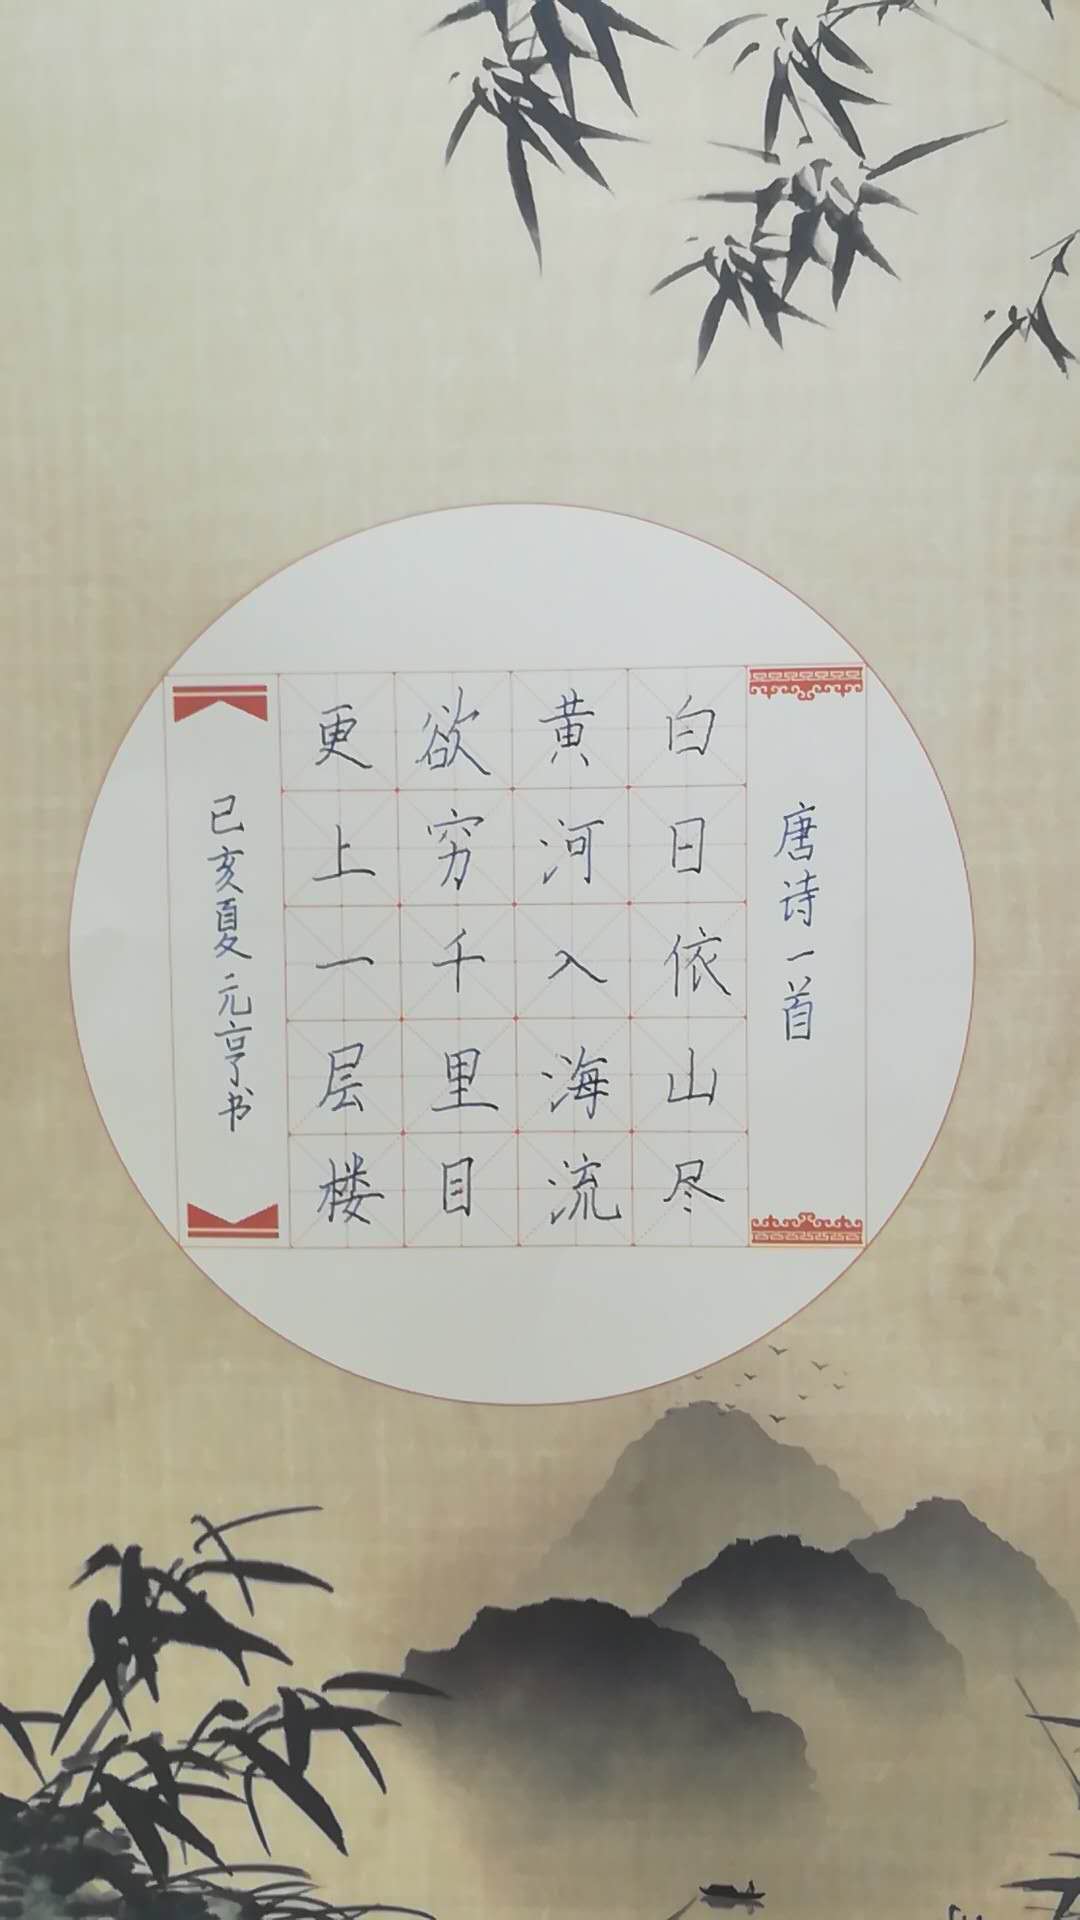 唐诗一首
白日依山尽
黄河入海流
欲穷千里目
更上一层楼
己亥夏元亨书